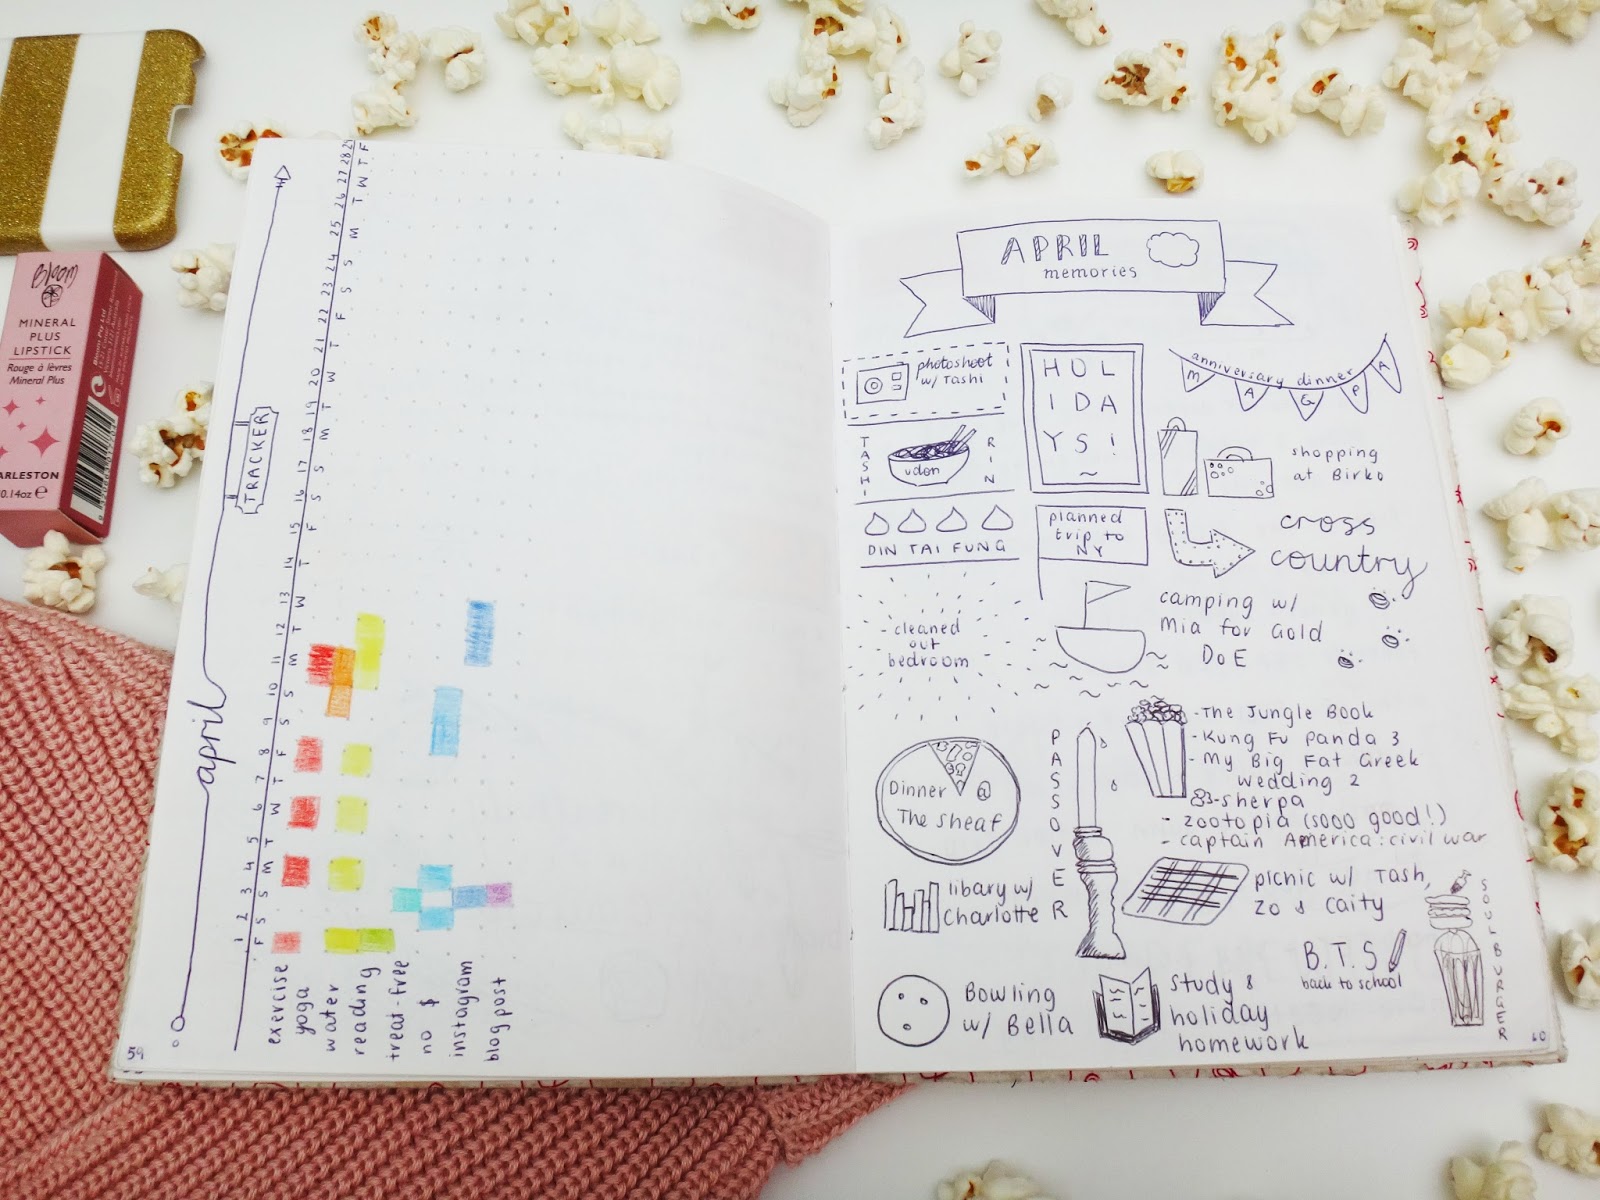 Bloom
MINERAL
PLUS
LIPSTICK
Rouge à lèvres
Mineral Plus
ARLESTON
0.14oz e
Bloom Pty Ltd
april
TRACKER
1 2 3 4 5 6 7 8 9 10 11 12 13 14 15 16 17 18 19 20 21 22 23 24 25 26 27 28 29
F S S M T W T F S S M T W T F S S M T W T F S S M T W T F
exercise
yoga
water
reading
treat-free
no $
instagram
blog post
59
APRIL
memories
photoshoot
w/ Tashi
HOL
IDA
YS!
anniversary dinner
M A G P A
TASHI
udon
RIN
shopping
at Birko
DIN TAI FUNG
planned
trip to
NY
cross
country
cleaned
out
bedroom
camping w/
Mia for Gold
DoE
PASSOVER
- The Jungle Book
- Kung Fu Panda 3
- My Big Fat Greek
wedding 2
-sherpa
- zootopia (sooo good!)
- captain America: civil war
Dinner @
The Sheaf
libary w/
Charlotte
picnic w/ Tash,
Zo & Caity
SOUL BURGER
B.T.S
back to school
Bowling
w/ Bella
study &
holiday
homework
60